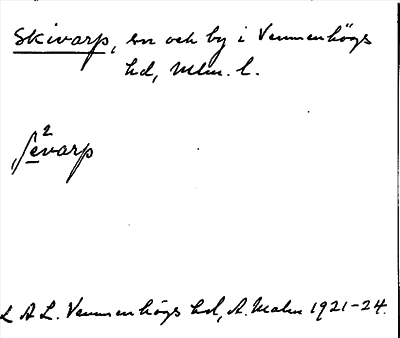 Skivarp, sn och by i Vemmenhögs
hd, Mlm. l.
ʃe²varp
LAL. Vemmenhögs hd, A. Malm 1921-24.